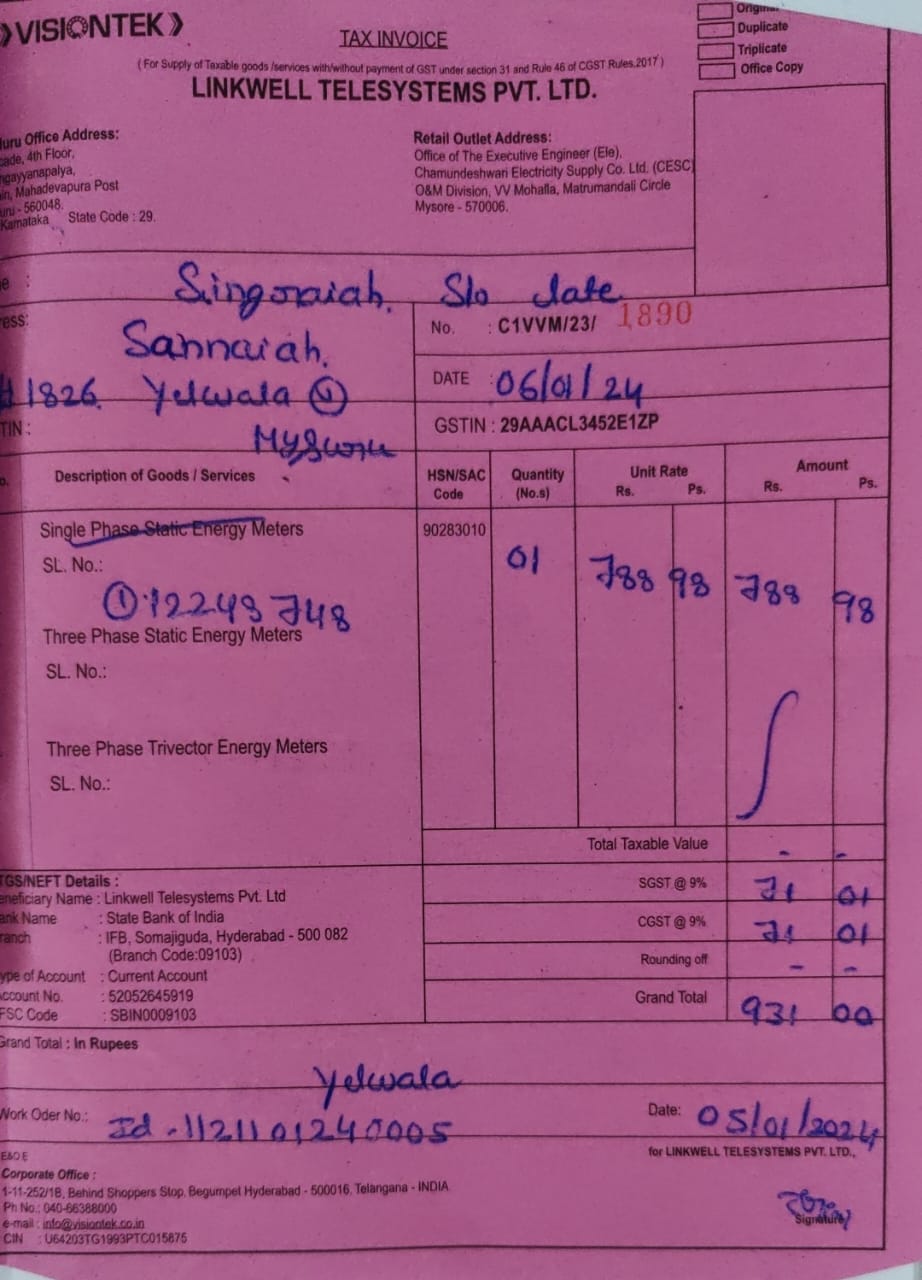 VISIONTEK
TAX INVOICE
Duplicate
Triplicate
Office Copy
( For Supply of Taxable goods /services with/without payment of GST under section 31 and Rule 46 of CGST Rules,2017 )
LINKWELL TELESYSTEMS PVT. LTD.
Office Address:
4th Floor,
Mahadevapura Post
- 560048.
Karnataka State Code : 29.
Retail Outlet Address:
Office of The Executive Engineer (Ele),
Chamundeshwari Electricity Supply Co. Ltd. (CESC)
O&M Division, VV Mohalla, Matrumandali Circle
Mysore - 570006.
Singoraiah. S/o late
Sannaiah.
#1826 Yelwala (V)
Mysuru
No. : C1VVM/23/ 1890
DATE : 06/01/24
GSTIN : 29AAACL3452E1ZP
Description of Goods / Services HSN/SAC Code Quantity (No.s) Unit Rate Rs. Ps. Amount Rs. Ps.
Single Phase Static Energy Meters 90283010 01 788 98 788 98
SL. No.:
① 12243748
Three Phase Static Energy Meters
SL. No.:
Three Phase Trivector Energy Meters
SL. No.:
Total Taxable Value - -
SGST @ 9% 71 01
CGST @ 9% 71 01
Rounding off - -
Grand Total 931 00
TGS/NEFT Details :
eneficiary Name : Linkwell Telesystems Pvt. Ltd
ank Name : State Bank of India
ranch : IFB, Somajiguda, Hyderabad - 500 082
(Branch Code:09103)
ype of Account : Current Account
ccount No. : 52052645919
FSC Code : SBIN0009103
Grand Total : In Rupees
Yelwala
Work Oder No.: Id - 1121101240005 Date: 05/01/2024
for LINKWELL TELESYSTEMS PVT. LTD.,
E&O E
Corporate Office :
1-11-252/1B, Behind Shoppers Stop, Begumpet Hyderabad - 500016, Telangana - INDIA
Ph No.: 040-66388000
e-mail : info@visiontek.co.in
CIN : U64203TG1993PTC015875
Signature